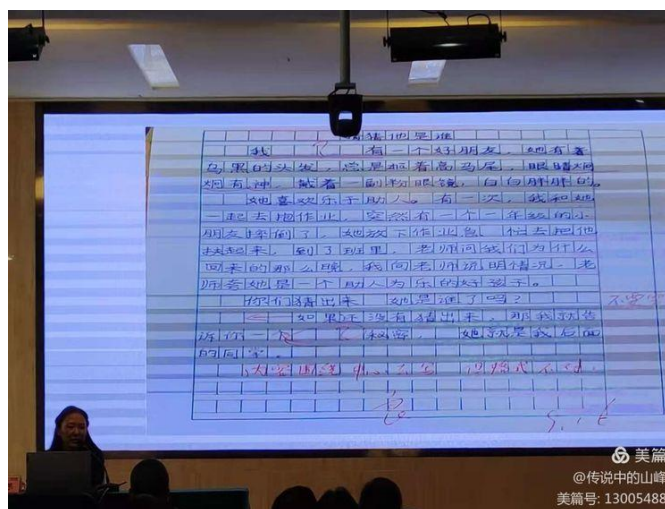 猜猜他是谁
我有一个好朋友，她有着
乌黑的头发，总是扎着高马尾，眼睛大而
炯有神，戴着一副粉眼镜，白白胖胖的。
她喜欢乐于助人。有一次，我和她
一起去抱作业，突然有一个一年级的小
朋友摔倒了，她放下作业急忙去把他
扶起来，到了班里，老师问我们为什么
回来的那么晚，我向老师说明情况，老
师夸她是一个助人为乐的好孩子。
你们猜出来她是谁了吗？
如果还没有猜出来，那我就告
诉你一个秘密，她就是我后面
的同学。
内容围绕中心
美篇
@传说中的山峰
美篇号: 13005488